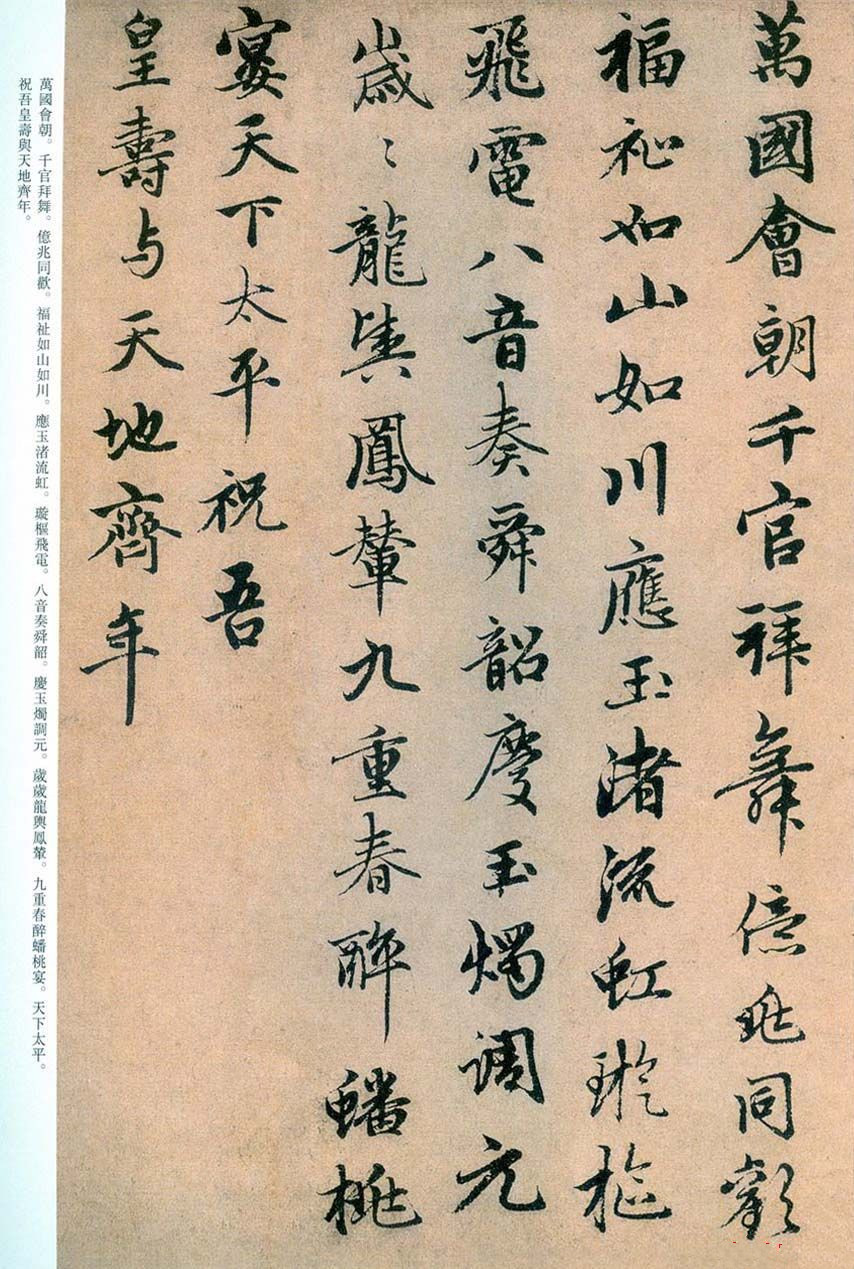 萬國會朝千官拜舞億兆同歡
福祉如山如川應玉渚流虹璇樞
飛電八音奏舜韶慶玉燭調元
歲〻龍輿鳳輦九重春醉蟠桃
宴天下太平祝吾
皇壽与天地齊年
萬國會朝。千官拜舞。億兆同歡。福祉如山如川。應玉渚流虹。璇樞飛電。八音奏舜韶。慶玉燭調元。歲歲龍輿鳳輦。九重春醉蟠桃宴。天下太平。
祝吾皇壽與天地齊年。